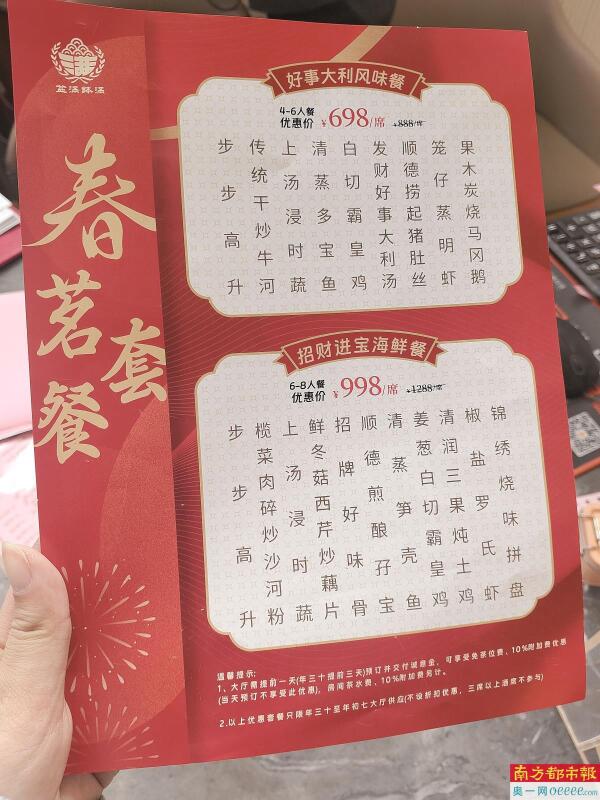 春茗套餐
好事大利风味餐
4-6人餐
优惠价 ¥698/席 ¥888/席
果木炭烧马冈鹅
笼仔蒸明虾
顺德捞起猪肚丝
发财好事大利汤
白切霸皇鸡
清蒸多宝鱼
上汤浸时蔬
传统干炒牛河
步步高升
招财进宝海鲜餐
6-8人餐
优惠价 ¥998/席 ¥1288/席
锦绣烧味拼盘
椒盐罗氏虾
清润三果炖土鸡
姜葱白切霸皇鸡
清蒸笋壳鱼
顺德煎酿孖宝
招牌好味骨
鲜冬菇西芹炒藕片
上汤浸时蔬
榄菜肉碎炒沙河粉
步步高升
温馨提示:
1、大厅需提前一天(年三十提前三天)预订并交付诚意金，可享受免茶位费、10%附加费优惠
(当天预订不享受此优惠)，房间茶水费、10%附加费另计。
2.以上优惠套餐只限年三十至年初七大厅供应(不设折扣优惠，三席以上酒席不参与)
南方都市报
奥一网oeeee.com